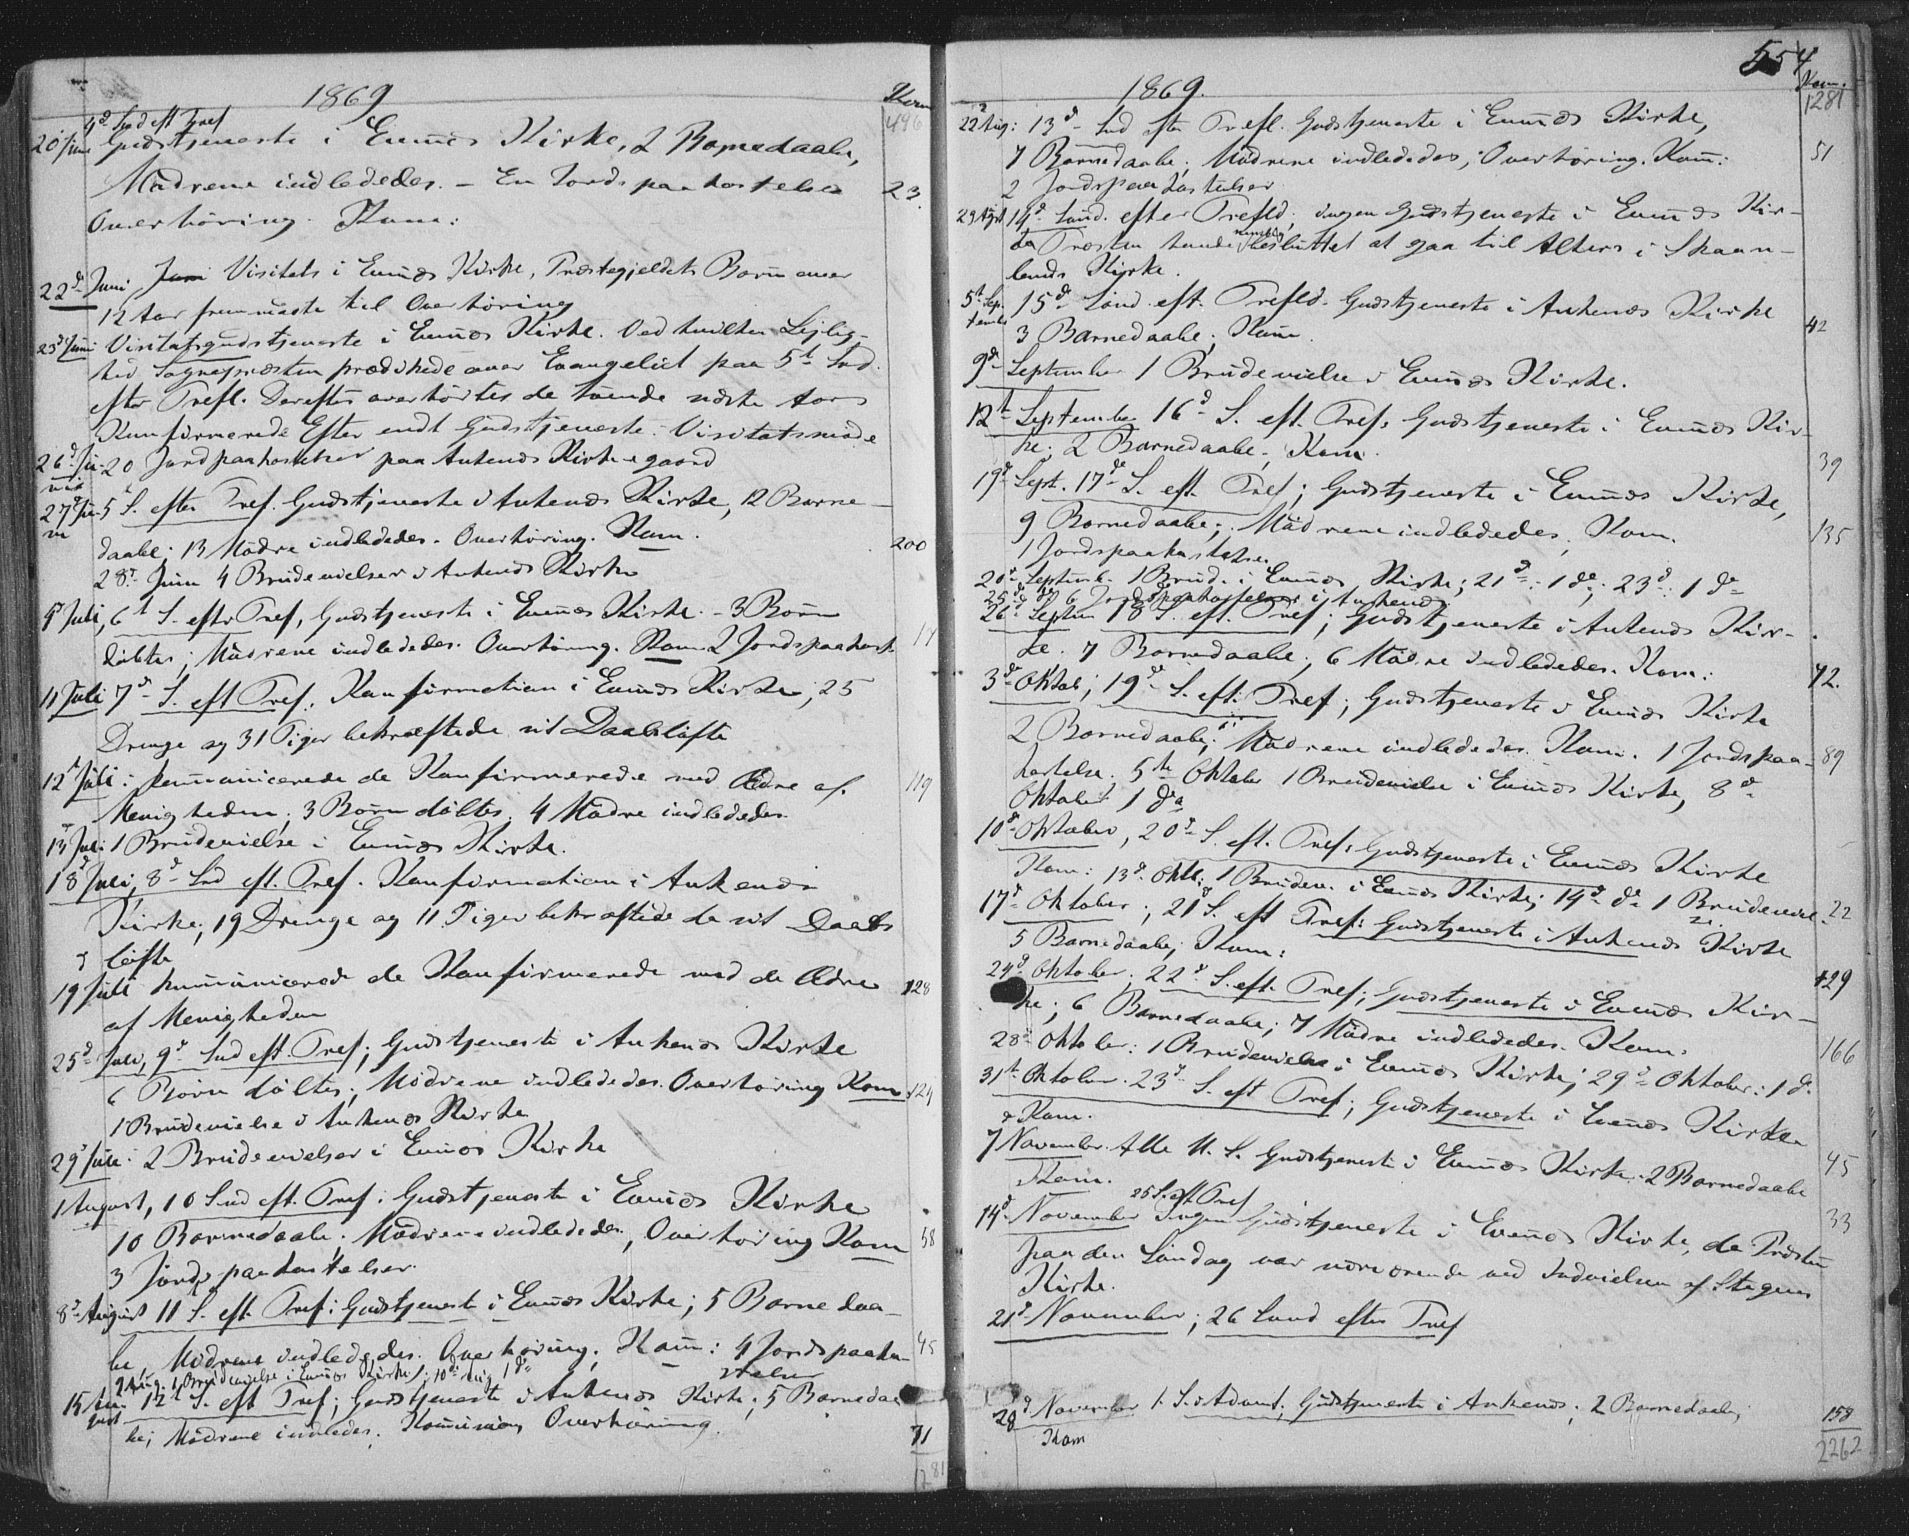 1869
Kom
4d Snd eft Tref
496
20 Juni Gudstjeneste i Evenæs Kirke, 2 Barnedaabe,
Mødrene indlededes. – En Jordspaakastelse
23.
Overhøring. Kom:
22d Juni Visitats i Evenæs Kirke, Præstegjeldets Børn over
12 Aar fremmødte til Overhøring
23d Juni Visitatsgudstjeneste i Evenæs Kirke. Ved hvilken Leilig-
hed Sognepræsten prædikede over Evangeliet paa 5t Snd.
efter Tref. Derefter overhørtes de tvende sidste Aars
Konfirmerede Efter endt Gudstjeneste. Visitatsmøde
26d Ju- 20 Jordpaakastelser paa Ankenæs Kirkegaard
ni
27d Ju- 5 S. efter Tref. Gudstjeneste i Ankenæs Kirke, 12 Barne-
ni
daabe; 13 Mødre indlededes. Overhøring. Kom.
200
28d Juni 4 Brudevielser i Ankenæs Kirke
Juli, 6t S. efter Tref, Gudstjeneste i Evenæs Kirke. – 3 Børn
døbtes; Mødrene indlededes. Overhøring. Kom 2 Jordspaakast
11 Juli 7d S. eft Tref. Konfirmation i Evenæs Kirke; 25
Drenge og 31 Piger bekræftede sit Daabsløfte
12 Juli: kommunicerede de Konfirmerede med Ældre af
119
Menigheden; 3 Børn døbtes. 4 Mødre indlededes.
13 Juli 1 Brudevielse i Evenæs Kirke.
18d Juli, 8d Snd eft. Tref. Konfirmation i Ankenæs
Kirke; 19 Drenge og 11 Piger bekræftede de sit Daabs
løfte
19 Juli kommunicerede de Konfirmerede med de Ældre
128
af Menigheden
25d Juli, 9d Snd eft. Tref; Gudstjeneste i Ankenæs Kirke
6 Børn døbtes; Mødrene indlededes. Overhøring Kom
124
1 Brudevielse i Ankenæs Kirke
29 Juli: 2 Brudevielser i Evenæs Kirke
1 August, 10 Snd eft. Tref: Gudstjeneste i Evenæs Kirke
10 Barnedaabe. Mødrene indlededes, Overhøring Kom
58
3 Jordspaakastelser.
8d August 11 S. eft. Tref: Gudstjeneste i Evenæs Kirke; 5 Barnedaa-
be, Mødrene indlededes. Overhøring. Kom: 4 Jordspaaka-
45
stelser
Aug. 1 Brudevielse i Evenæs Kirke; 10d Aug 1 do
15 Au- 12t S. eft Tref; Gudstjeneste i Ankenæs Kirke; 5 Barnedaa
gust
be; Mødrene indledes. Kommunion Overhøring.
71
1281
554
1869.
Kom.
1281
22 Aug: 13d Snd efter Tref. Gudstjeneste i Evenæs Kirke,
7 Barnedaabe; Mødrene indlededes; Overhøring. Kom:
51
2 Jordspaakastelser
29 Agst 14d Sønd. efter Trefld; ingen Gudstjeneste i Evenæs Kir-
ke Præsten havde nemlig besluttet at gaa til Alters i Skaan-
lands Kirke.
5t Sep- 15d Sønd. eft. Trefld. Gudstjeneste i Ankenæs Kirke
tember
3 Barnedaabe; Kom.
42
9de September 1 Brudevielse i Evenæs Kirke.
12t September 16d S. eft. Tref, Gudstjeneste i Evenæs Kir-
ke; 2 Barnedaabe; Kom.
39
19d Sept. 17de S. eft. Tref; Gudstjeneste i Evenæs Kirke,
9 Barnedaabe; Mødrene indlededes, Kom.
135
1 Jordspaakastelse
20d September 1 Brud. i Evenæs Kirke; 21d: 1 do; 23d: 1 do
25d do 6 Jordspaakastelser i Ankenæs
26d Septem 18 S. eft. Tref; Gudstjeneste i Ankenæs Kir-
ke. 7 Barnedaabe; 6 Mødre indlededes. Kom:
72.
3de Oktob; 19de S. eft. Tref; Gudstjeneste i Evenæs Kirke
2 Barnedaabe; Mødrene indlededes. Kom. 1 Jordspaa-
89
kastelse. 5te Oktober 1 Brudevielse i Evenæs Kirke, 8d
Oktober 1 do
10d Oktober, 20d S. eft. Tref; Gudstjeneste i Evenæs Kirke
Kom: 13d Oktb; 1 Brudev. i Evenæs Kirke; 14d do 1 Brudeviel-
22
se
17d Oktober; 21d S. eft Tref: Gudstjeneste i Ankenæs Kirke
5 Barnedaabe; Kom:
129
24d Oktober; 22d S. eft. Tref; Gudstjeneste i Evenæs Kir-
ke; 6 Barnedaabe; 7 Mødre indlededes. Kom.
166
28d Oktober: 1 Brudevielse i Evenæs Kirke; 29d Oktober: 1 do
31t Oktober. 23d S. eft Tref; Gudstjeneste i Evenæs Kirke
Kom.
45
7 November. Alle H. S. Gudstjeneste i Evenæs Kirke. 2 Barnedaabe
Kom.
33
25 S. eft Tref
14d November Ingen Gudstjeneste i Evenæs Kirke, da Præsten
paa den Søndag var nærværende ved Indvielsen af
Kirke.
21d November; 26 Sønd efter Tref
28d November 1. S. i Advent, Gudstjeneste i Ankenæs; 2 Barnedaabe;
Kom
158
2262